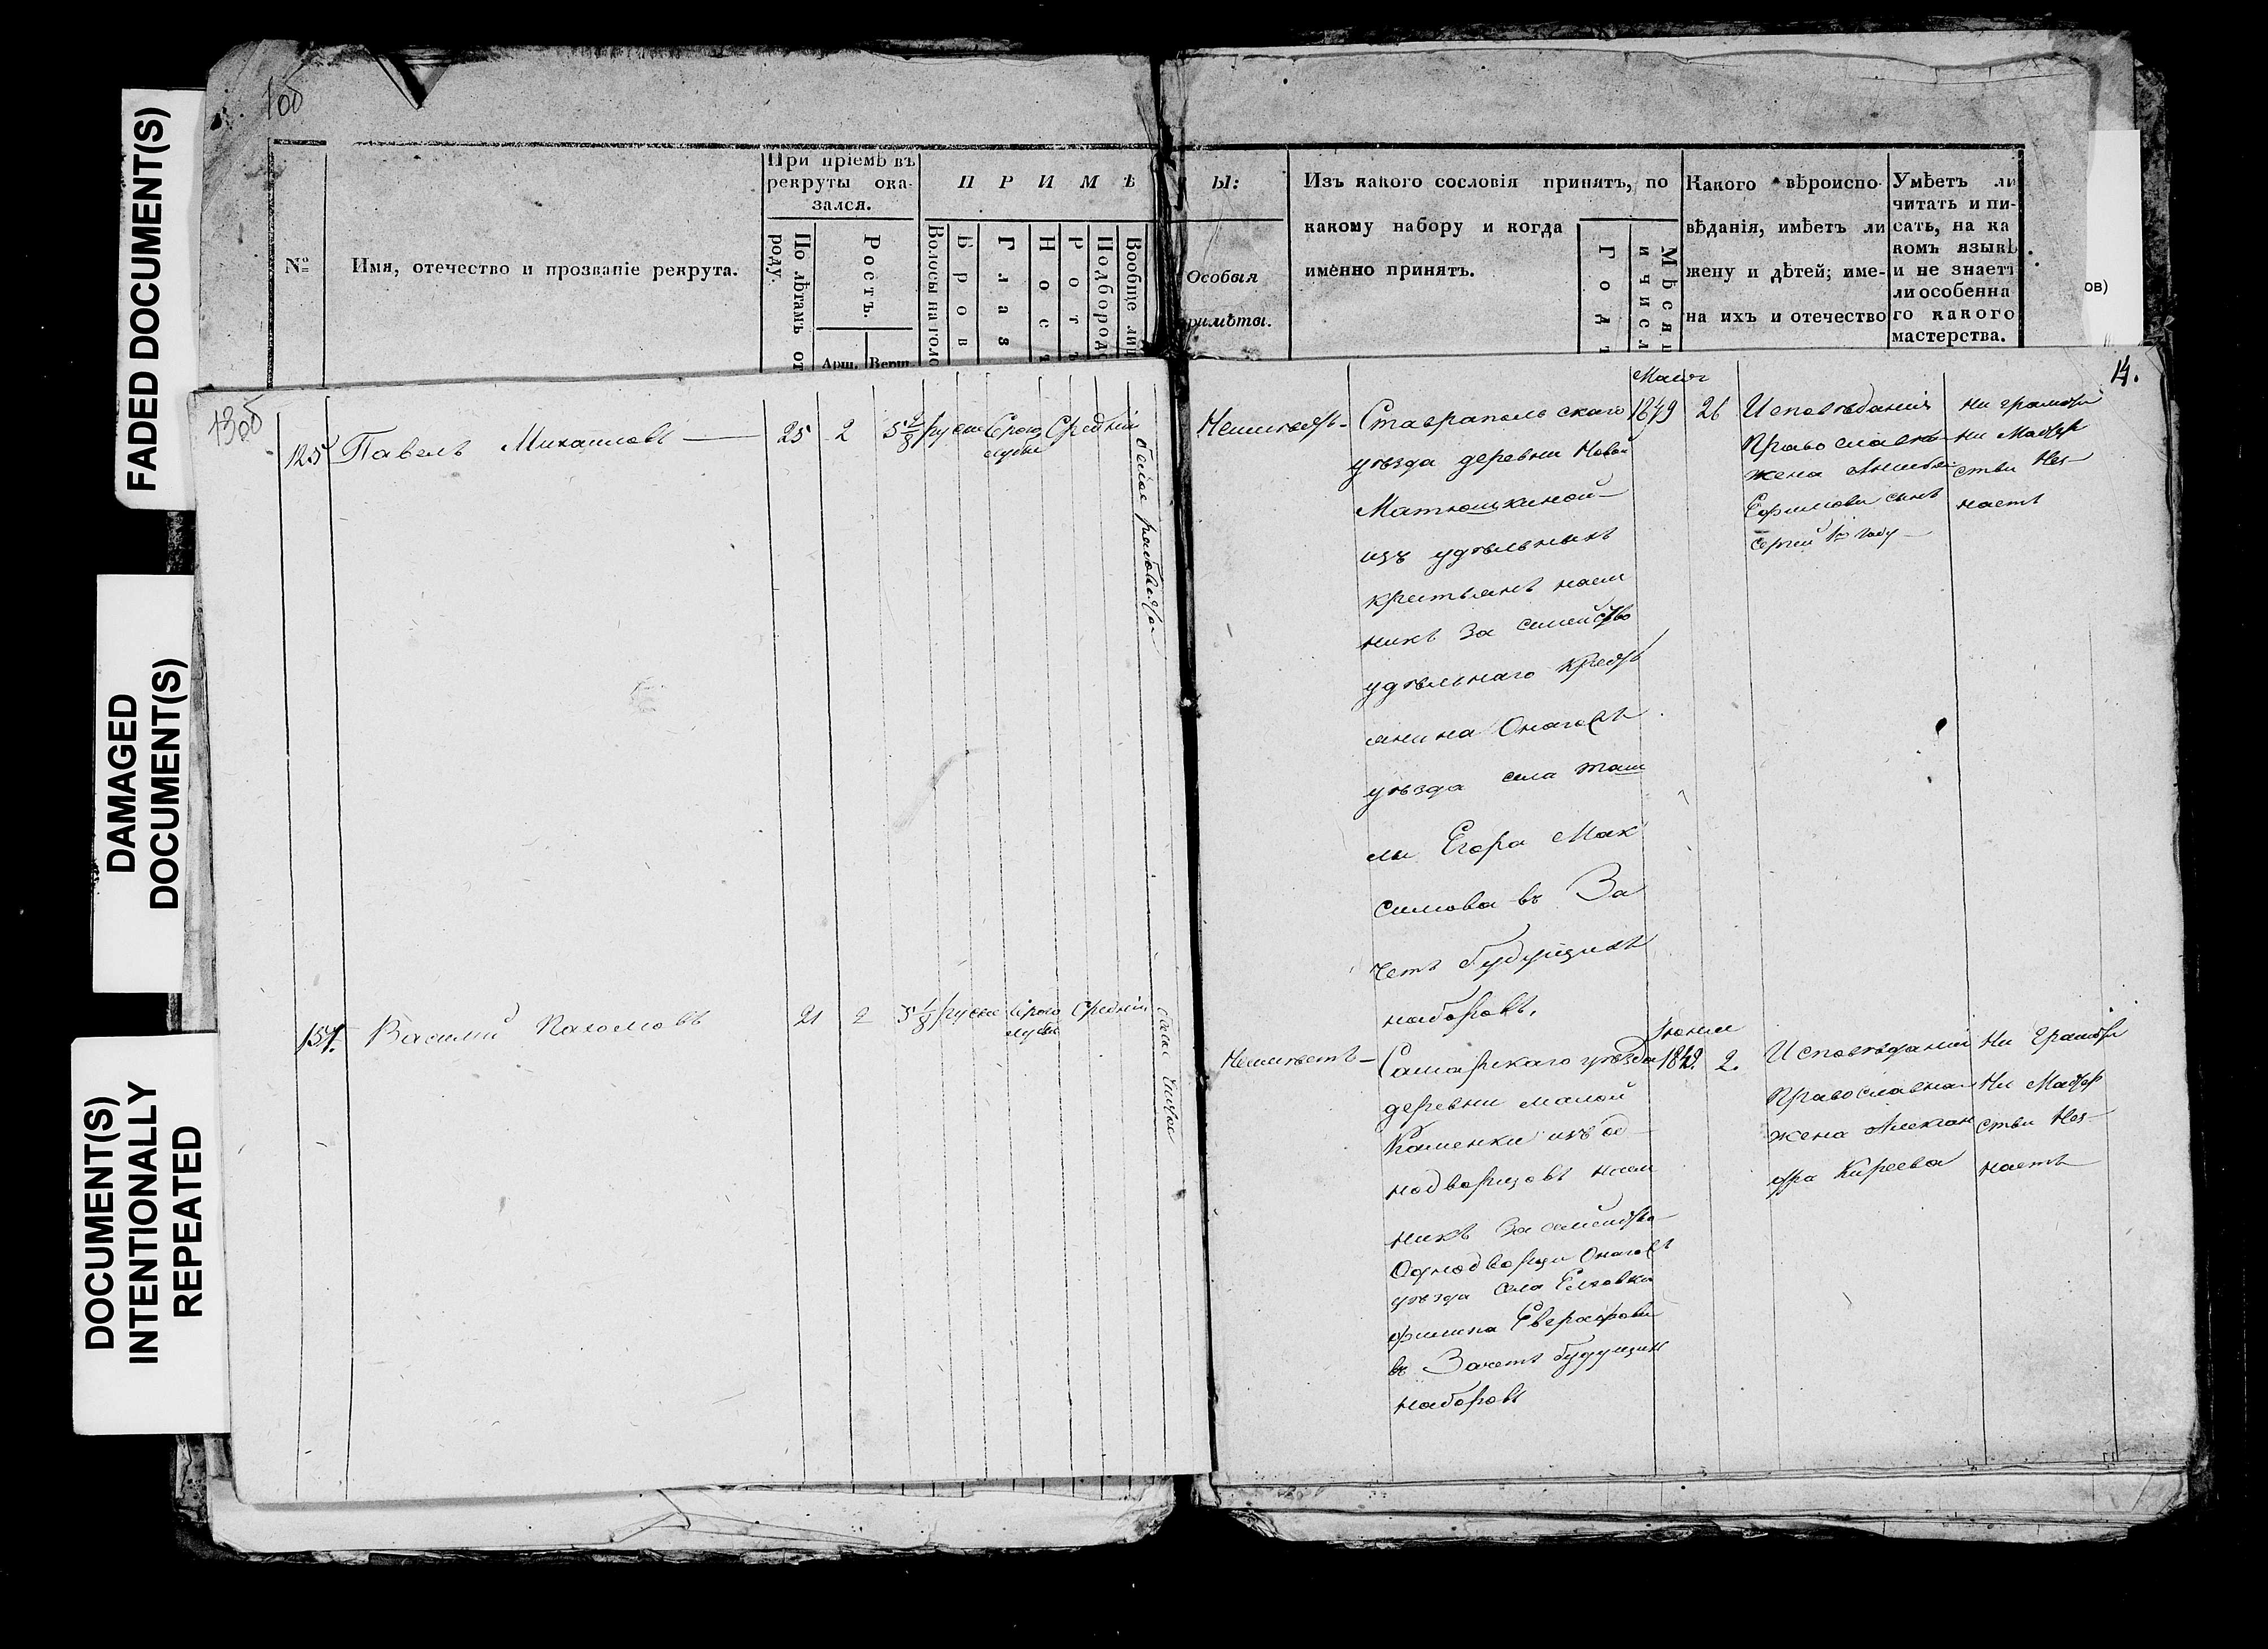 FADED DOCUMENT(S)
DAMAGED
DOCUMENT(S)
DOCUMENT(S)
INTENTIONALLY
REPEATED
1об
№
Имя, отечество и прозваніе рекрута.
При пріемѣ въ
рекруты ока-
зался.
По лѣтамъ от
роду.
Ростъ.
Арш.
Верш.
ПРИМѢ
Волосы на голо
Бров
Глаз
Нос
Рот
Подбород
Вообще лиц
Ы:
Особыя
римѣты.
Изъ какого сословія принятъ, по
какому набору и когда
именно принятъ.
Год
Мѣсяц
и числ
Какого вѣроиспо-
вѣданія, имѣетъ ли
жену и дѣтей; име-
на ихъ и отечество
Умѣетъ ли
читать и пи-
сать, на ка
комъ языкѣ
и не знаетъ
ли особенна
го какого
мастерства.
ов)
13об
14.
125 Павелъ Михаиловъ 25 2 5 2/8 русы Серого Средній
лубы
белое рябовато
Неимеетъ
Ставропольскаго
уѣзда деревни Новой
Матюшкиной
изъ удѣльныхъ
крестьянъ наем
никъ за семейство
удѣльнаго крест
янина Онагожъ
уѣзда села Таш
лы Егора Мак
симова въ За
четъ будущихъ
наборовъ.
Маія
1849 26
Исповѣданія
Православна
жена
Ефимова сынъ
Сергей году
ни грамоты
ни Мастер
ства Нез
наетъ
157. Василий Пахомовъ 21 2 5 1/8 русы Серого Средній
лубы
белое чистое
Неимеетъ
Самарскаго уѣзда
деревни малой
Каменки изъ од
нодворцовъ наем
никъ За семейство
Однодворца Онагожъ
уѣзда села Елховки
Филипа Евграфова
въ Зачетъ будущихъ
наборовъ
Іюня
1849. 2.
Исповѣданія
Православна
жена Алексан
дра Киреева
Ни Грамоты
Ни Мастер
ства Нез
наетъ